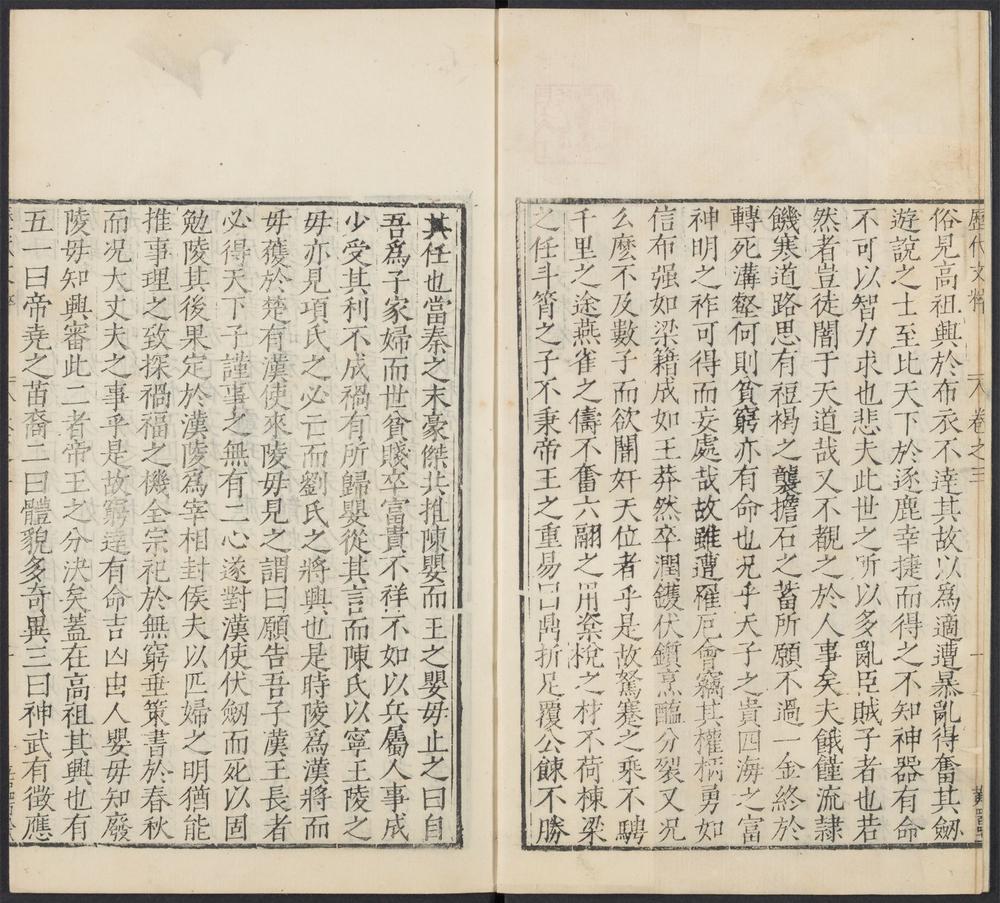 歷代文粹 卷之三
俗見高祖興於布衣不逹其故以爲適遭暴亂得奮其劒
遊說之士至比天下於逐鹿幸捷而得之不知神器有命
不可以智力求也悲夫此世之所以多亂臣賊子者也若
然者豈徒闇于天道哉又不觀之於人事矣夫餓饉流隷
饑寒道路思有裋褐之襲擔石之蓄所願不過一金終於
轉死溝壑何則貧窮亦有命也况乎天子之貴四海之富
神明之祚可得而妄處哉故雖遭罹厄會竊其權柄勇如
信布强如梁籍成如王莽然卒潤鑊伏鑕烹醢分裂又况
么麽不及數子而欲闇奸天位者乎是故駑蹇之乘不騁
千里之途燕雀之儔不奮六翮之用楶梲之材不荷棟梁
之任斗筲之子不秉帝王之重易曰鼎折足覆公餗不勝
其任也當秦之末豪傑共推陳嬰而王之嬰母止之曰自
吾爲子家婦而世貧賤卒富貴不祥不如以兵屬人事成
少受其利不成禍有所歸嬰從其言而陳氏以寧王陵之
母亦見項氏之必亡而劉氏之將興也是時陵爲漢將而
母獲於楚有漢使來陵母見之謂曰願告吾子漢王長者
必得天下子謹事之無有二心遂對漢使伏劒而死以固
勉陵其後果定於漢陵爲宰相封侯夫以匹婦之明猶能
推事理之致探禍福之機全宗祀於無窮垂策書於春秋
而况大丈夫之事乎是故窮達有命吉凶由人嬰母知廢
陵母知興審此二者帝王之分決矣蓋在高祖其興也有
五一曰帝堯之苗裔二曰體貌多奇異三曰神武有徵應